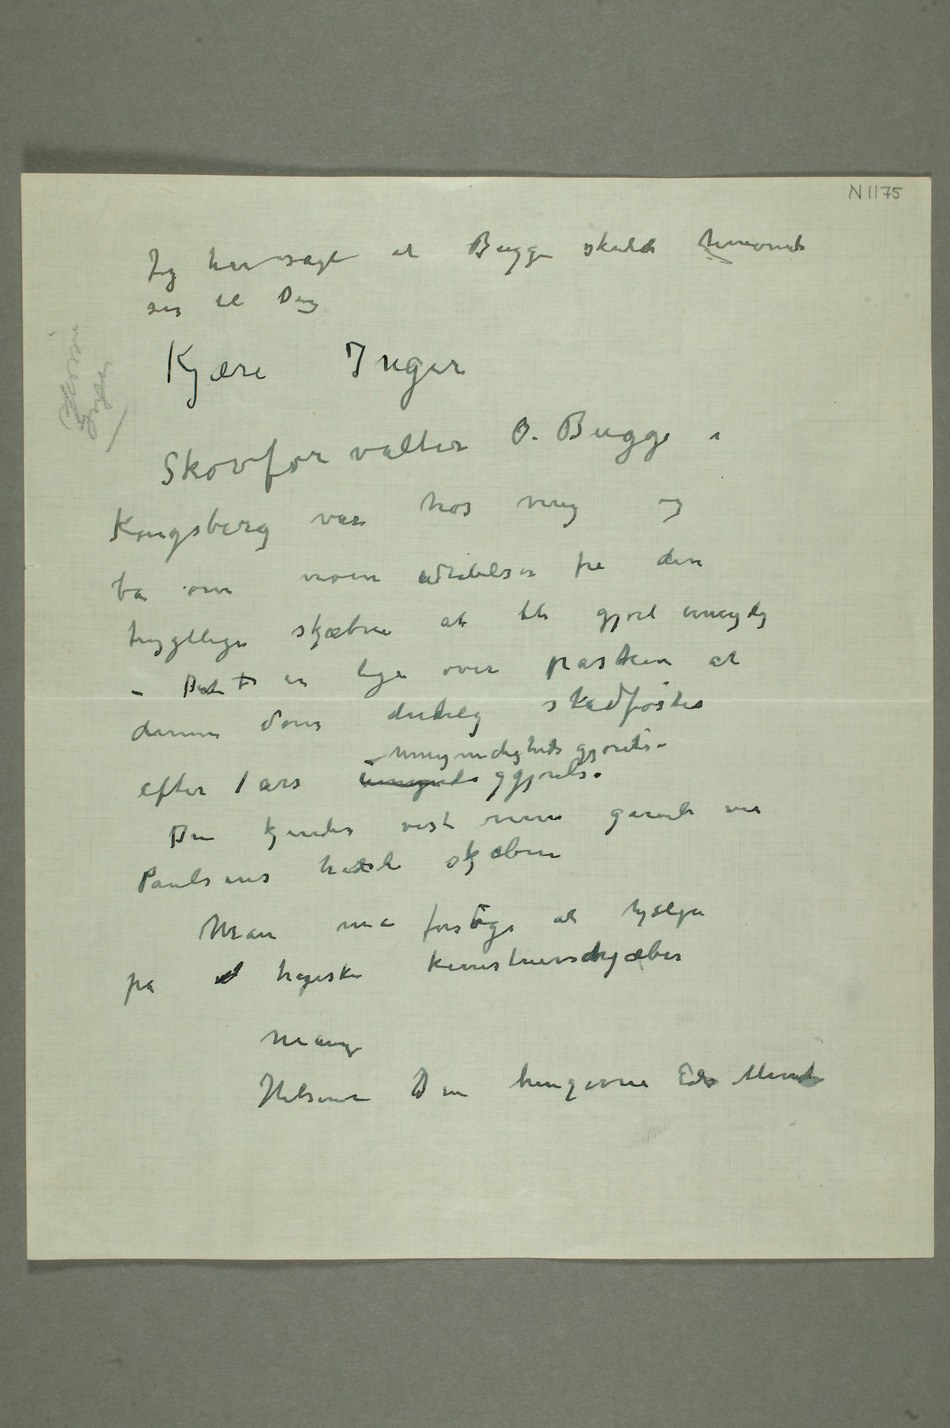 N 1175
Jeg har sagt at Bugge skulde henvende
sig til Dig
Kjære Inger
Skovforvalter O. Bugge i
Kongsberg var hos mig og
ba om min udtalelse fra den
frygtlige skjæbne at bli gjort umyndig
– Det er lige over påsken at
denne dom endelig stadfæstes
efter 1 års umyndiggjørelse
umyndighedsgjørelse
Du kjender vist min gamle ven
Paulsens skjæbne
Man må forsøge at hjælpe
på tragiske kunstnerskjæbner
Mange
Hilsener Din hengivne Edv Munch